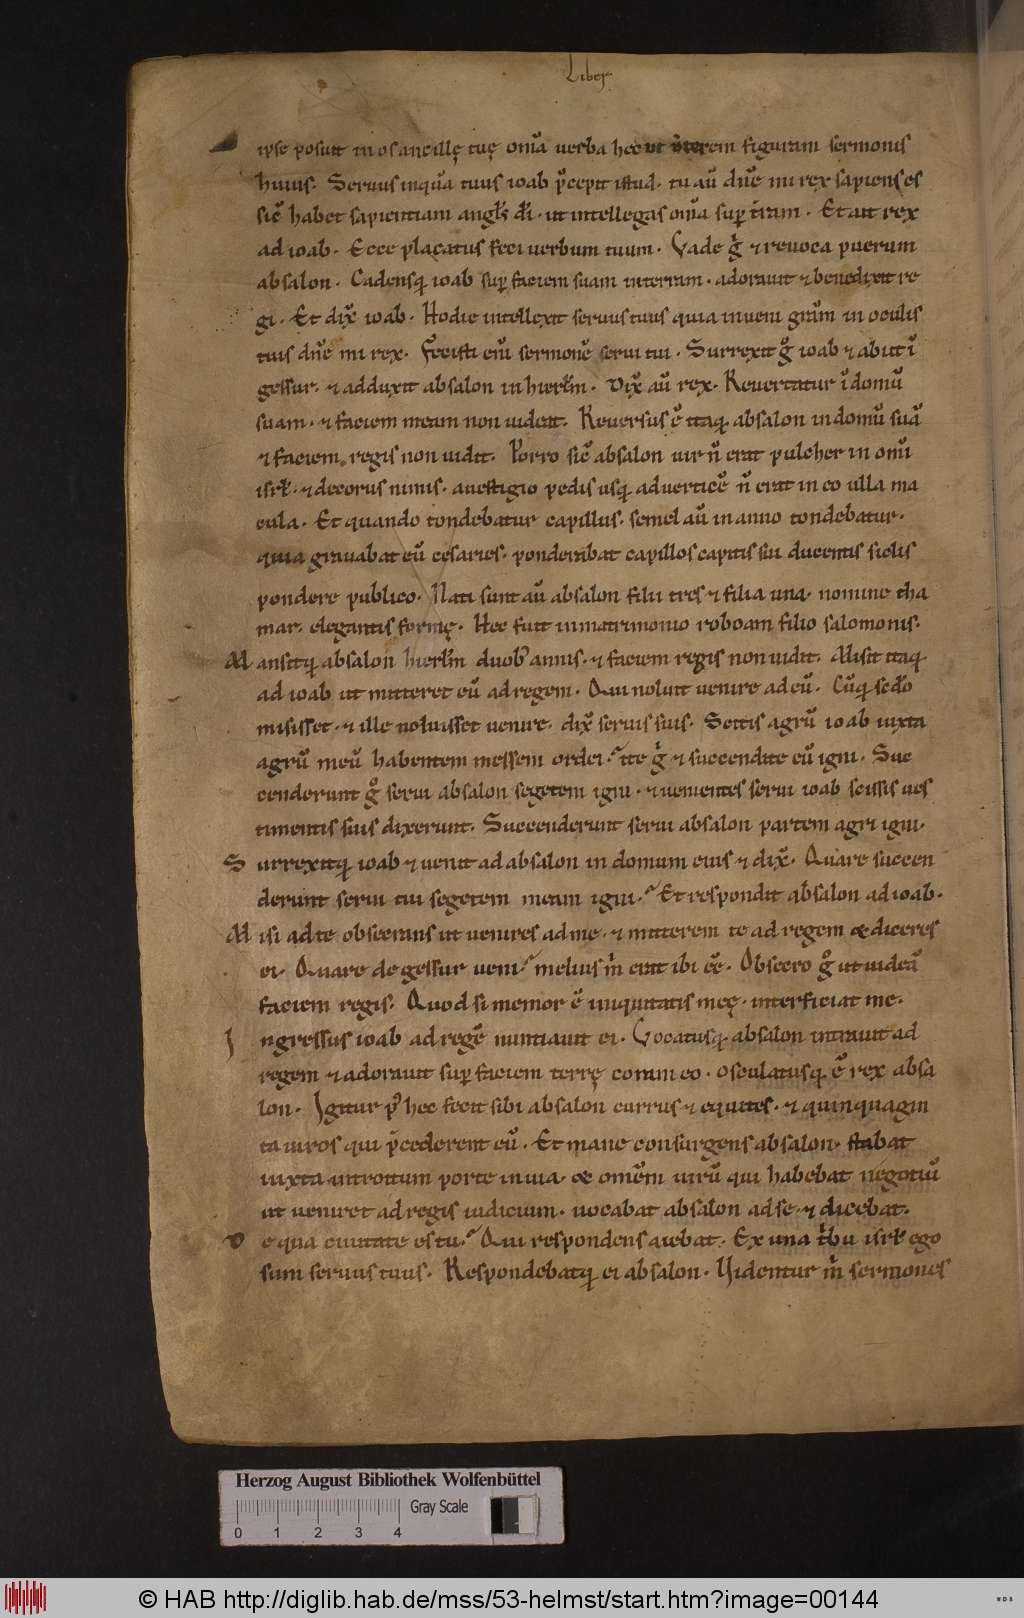 Liber
ipse posuit in os ancillę tuę om̄ia uerba hęc ut ūterem figuram sermonis
huius. Seruus inquā tuus ioab p̄cepit istud. tu aū dn̄e mi rex sapiens es
sic̄ habet sapientiam angl̄s di. ut intellegas om̄ia sup t̄ram. Et ait rex
ad ioab. Ecce placatus feci uerbum tuum. Vade ḡ & reuoca puerum
absalon. Cadensq; ioab sup faciem suam in terram. adorauit & benedixit re
gi. Et dix̄ ioab. Hodie intellexit seruus tuus quia inueni grām in oculis
tuis dn̄e mi rex. Fecisti enī sermonē serui tui. Surrexit g̊ ioab & abiit ī
gessur. & adduxit absalon in hierlm̄. Dix̄ aū rex. Reuertatur ī domū
suam. & faciem meam non uideat. Reuersus ē itaq; absalon in domū suā
& faciem regis non uidit. Porro sic̄ absalon uir n̄ erat pulcher in om̄i
isrl̄. & decorus nimis. a uestigio pedis usq; ad uerticē n̄ erat in eo ulla ma
cula. Et quando tondebatur capillus. semel aū in anno tondebatur.
quia grauabat eū cęsaries. ponderabat capillos capitis sui ducentis siclis
pondere publico. Nati sunt aū absalon filii tres & filia una. nomine tha
mar. elegantis formę. Hec fuit in matrimonio roboam filio salomonis.
Mansitq; absalon hierlm̄ duob; annis. & faciem regis non uidit. Misit itaq;
ad ioab ut mitteret eū ad regem. Qui noluit uenire ad eū. Cūq; sed̄o
misisset. & ille noluisset uenire. dix̄ seruis suis. Scitis agrū ioab iuxta
agrū meū habentem messem ordei? ite ḡ & succendite eū igni. Suc
cenderunt g̊ serui absalon segetem igni. & uenientes serui ioab scissis ues
timentis suis dixerunt. Succenderunt serui absalon partem agri igni.
Surrexitq; ioab & uenit ad absalon in domum eius & dix̄. Quare succen
derunt serui tui segetem meam igni? Et respondit absalon ad ioab.
Misi ad te obsecrans ut uenires ad me. & mitterem te ad regem & diceres
ei. Quare de gessur ueni? melius m̄ erat ibi ee̅. Obsecro g̊ ut uideā
faciem regis. Quod si memor ē iniquitatis meę. interficiat me.
Ingressus ioab ad regē nuntiauit ei. Vocatusq; absalon intrauit ad
regem & adorauit sup faciem terrę coram eo. osculatusq; ē rex absa
lon. Igitur p; hec fecit sibi absalon currus & equites. & quinquagin
ta uiros qui p̄cederent eū. Et mane consurgens absalon. stabat
iuxta introitum porte in uia. & omēm uirū qui habebat negotiū
ut ueniret ad regis iudicium. uocabat absalon ad se. & dicebat.
De qua ciuitate es tu? Qui respondens aiebat. Ex una tribu isrl̄ ego
sum seruus tuus. Respondebatq; ei absalon. Videntur m̄ sermones
Herzog August Bibliothek Wolfenbüttel
Gray Scale
0 1 2 3 4
© HAB http://diglib.hab.de/mss/53-helmst/start.htm?image=00144